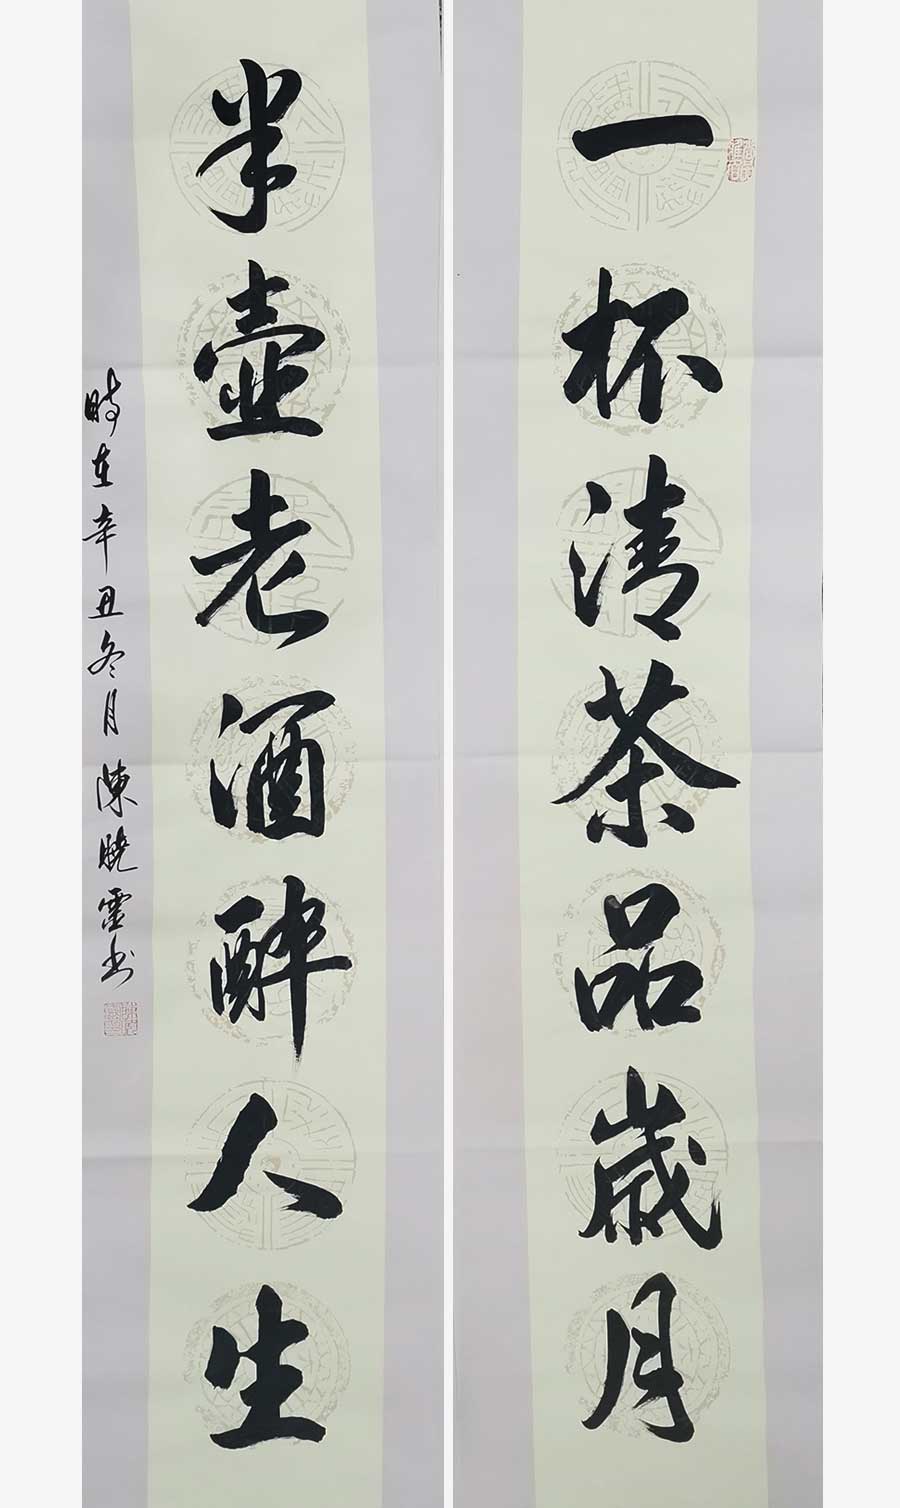 一杯清茶品歲月
半壺老酒醉人生
時在辛丑冬月陳曉靈书